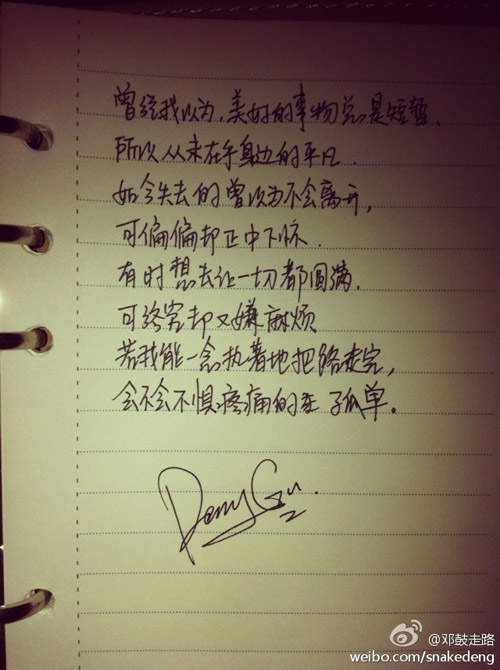 曾经我以为,美好的事物总是短暂.
所以从未在乎身边的平凡.
如今失去的曾以为不会离开,
可偏偏却正中下怀.
有时想去让一切都圆满.
可终究却又嫌麻烦
若我能一念执著地把路走完,
会不会不惧疼痛的在 孤单。
@邓鼓走路
weibo.com/snakedeng